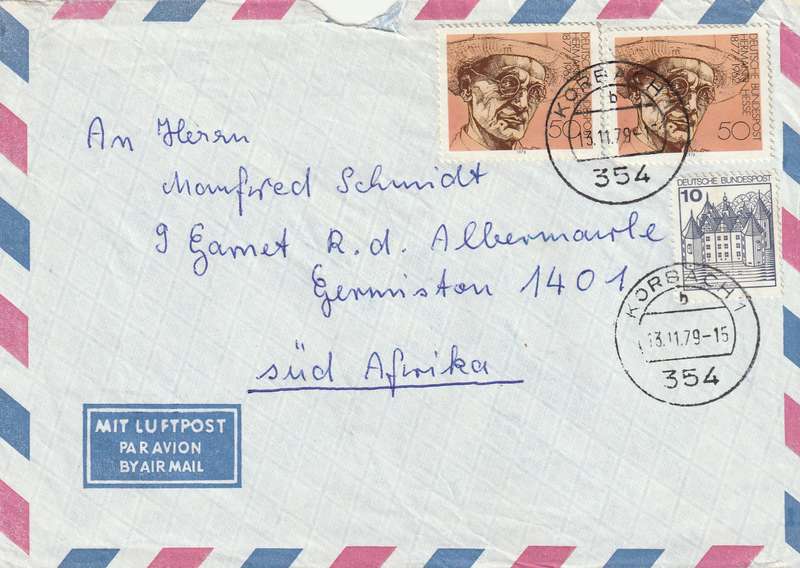 DEUTSCHE BUNDESPOST
HERMANN HESSE
1877-1962
50
DEUTSCHE BUNDESPOST
HERMANN HESSE
1877-1962
50
KORBACH 1
b
13.11.79-15
354
An Herrn
Manfred Schmidt
9 Garnet R.d. Albermarle
Germiston 1401
süd Afrika
DEUTSCHE BUNDESPOST
10
KORBACH 1
b
13.11.79-15
354
MIT LUFTPOST
PAR AVION
BY AIR MAIL